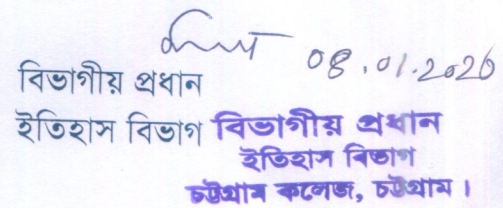 08.01.2026
বিভাগীয় প্রধান
ইতিহাস বিভাগ
বিভাগীয় প্রধান
ইতিহাস বিভাগ
চট্টগ্রাম কলেজ, চট্টগ্রাম।